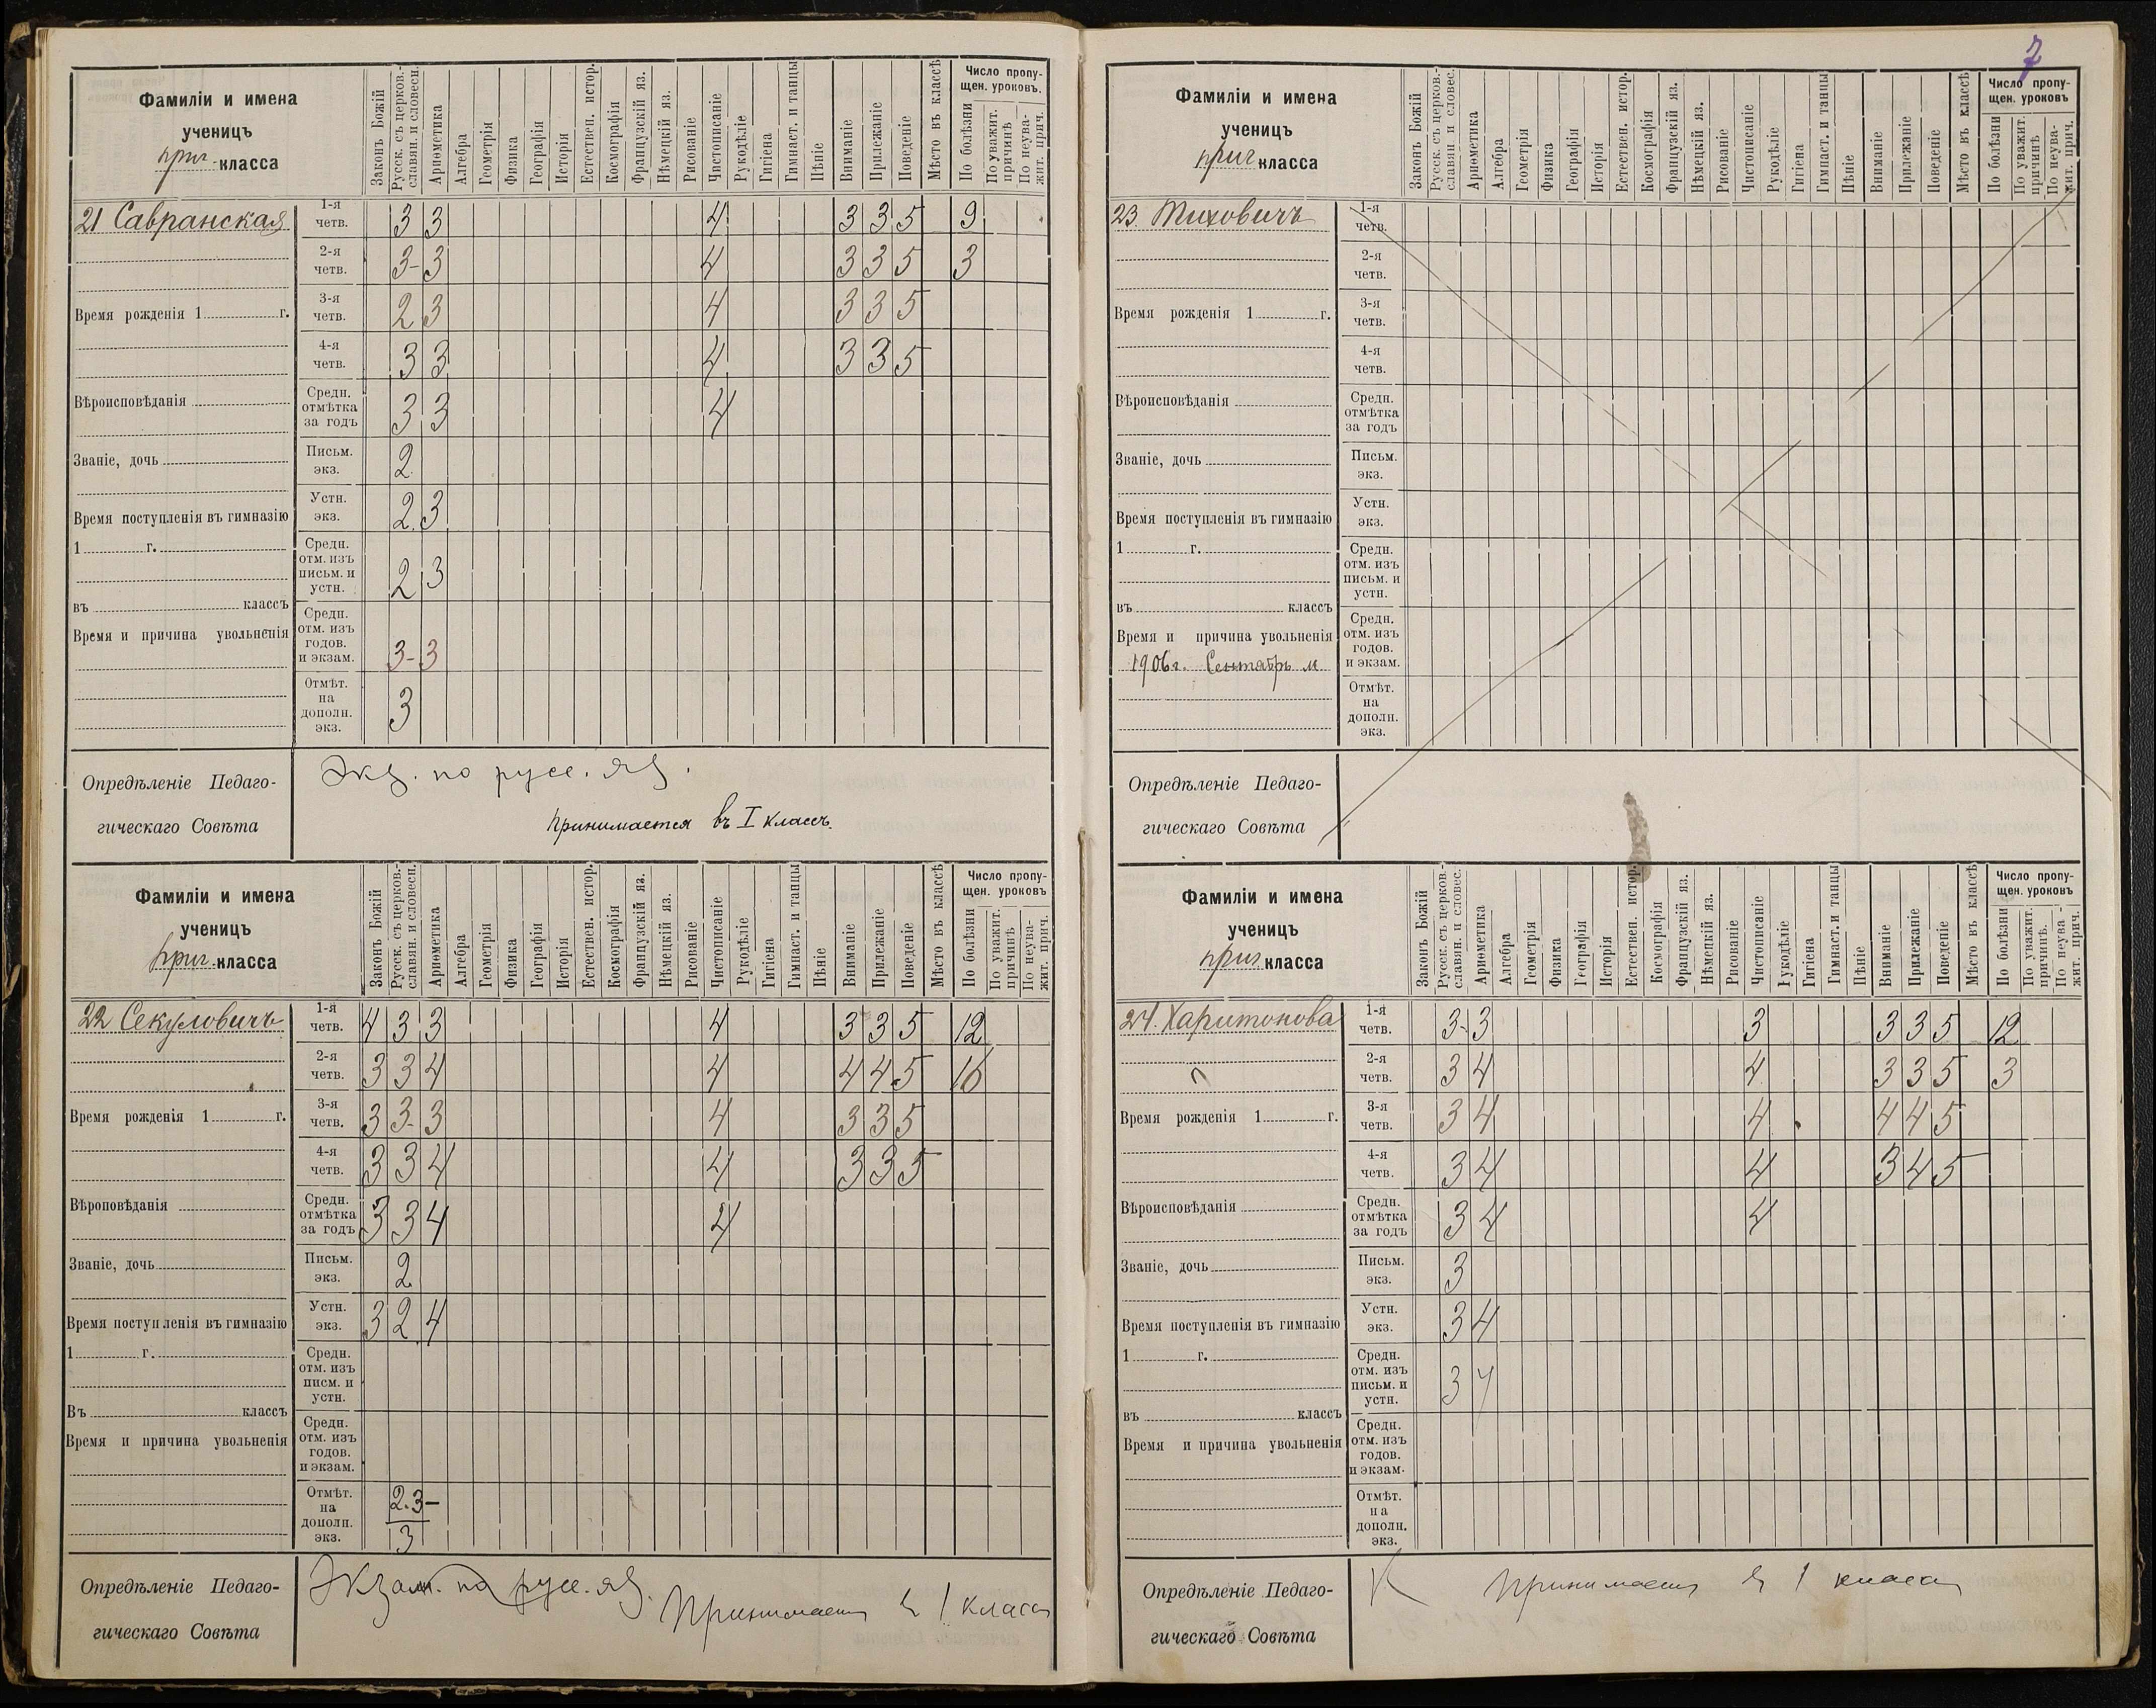 7
Фамиліи и имена
ученицъ
приг. класса
Законъ Божій
Русск. съ церков.-
славян. и словесн.
Ариѳметика
Алгебра
Геометрія
Физика
Географія
Исторія
Естествен. истор.
Космографія
Французскій яз.
Нѣмецкій яз.
Рисованіе
Чистописаніе
Рукодѣліе
Гигіена
Гимнаст. и танцы
Пѣніе
Вниманіе
Прилежаніе
Поведеніе
Мѣсто въ классѣ
Число пропу-
щен. уроковъ.
По болѣзни
По уважит.
причинѣ
По неува-
жит. прич.
21 Савранская
1-я
четв. 3 3 4 3 3 5 9
2-я
четв. 3- 3 4 3 3 5 3
Время рожденія 1 г.
3-я
четв. 2 3 4 3 3 5
4-я
четв. 3 3 4 3 3 5
Вѣроисповѣданія
Средн.
отмѣтка
за годъ 3 3 4
Званіе, дочь
Письм.
экз. 2
Время поступленія въ гимназію
1 г.
Устн.
экз. 2 3
Средн.
отм. изъ
письм. и
устн. 2 3
въ классъ
Время и причина увольненія
Средн.
отм. изъ
годов.
и экзам. 3- 3
Отмѣт.
на
дополн.
экз. 3
Опредѣленіе Педаго-
гическаго Совѣта
Экз. по русс. яз.
Принимается въ I классъ.
Фамиліи и имена
ученицъ
приг. класса
Законъ Божій
Русск. съ церков.-
славян. и словесн.
Ариѳметика
Алгебра
Геометрія
Физика
Географія
Исторія
Естествен. истор.
Космографія
Французскій яз.
Нѣмецкій яз.
Рисованіе
Чистописаніе
Рукодѣліе
Гигіена
Гимнаст. и танцы
Пѣніе
Вниманіе
Прилежаніе
Поведеніе
Мѣсто въ классѣ
Число пропу-
щен. уроковъ
По болѣзни
По уважит.
причинѣ
По неува-
жит. прич.
22 Секуловичъ
1-я
четв. 4 3 3 4 3 3 5 12
2-я
четв. 3 3 4 4 4 4 5 16
Время рожденія 1 г.
3-я
четв. 3 3- 3 4 3 3 5
4-я
четв. 3 3 4 4 3 3 5
Вѣроповѣданія
Средн.
отмѣтка
за годъ 3 3 4 4
Званіе, дочь
Письм.
экз. 2
Время поступленія въ гимназію
1 г.
Устн.
экз. 3 2 4
Средн.
отм. изъ
писм. и
устн.
Въ классъ
Время и причина увольненія
Средн.
отм. изъ
годов.
и экзам.
Отмѣт.
на
дополн.
экз. 2. 3-
3
Опредѣленіе Педаго-
гическаго Совѣта
Экзам. по русс. яз.
Принимает 1 класса
Фамиліи и имена
ученицъ
приг класса
Законъ Божій
Русск. съ церков.-
славян. и словес.
Ариѳметика
Алгебра
Геометрія
Физика
Географія
Исторія
Естествен. истор.
Космографія
Французскій яз.
Нѣмецкій яз.
Рисованіе
Чистописаніе
Рукодѣліе
Гигіена
Гимнаст. и танцы
Пѣніе
Вниманіе
Прилежаніе
Поведеніе
Мѣсто въ классѣ
Число пропу-
щен. уроковъ
По болѣзни
По уважит.
причинѣ
По неува-
жит. прич.
23. Тиховичъ
1-я
четв.
2-я
четв.
Время рожденія 1 г.
3-я
четв.
4-я
четв.
Вѣроисповѣданія
Средн.
отмѣтка
за годъ
Званіе, дочь
Письм.
экз.
Время поступленія въ гимназію
1 г.
Устн.
экз.
Средн.
отм. изъ
письм. и
устн.
въ классъ
Время и причина увольненія
1906г. Сентябрь м
Средн.
отм. изъ
годов.
и экзам.
Отмѣт.
на
дополн.
экз.
Опредѣленіе Педаго-
гическаго Совѣта
Фамиліи и имена
ученицъ
приг. класса
Законъ Божій
Русск. съ церков.-
славян. и словес.
Ариѳметика
Алгебра
Геометрія
Физика
Географія
Исторія
Естествен. истор.
Космографія
Французскій яз.
Нѣмецкій яз.
Рисованіе
Чистописаніе
Рукодѣліе
Гигіена
Гимнаст. и танцы
Пѣніе
Вниманіе
Прилежаніе
Поведеніе
Мѣсто въ классѣ
Число пропу-
щен. уроковъ
По болѣзни
По уважит.
причинѣ.
По неува-
жит. прич.
24. Харитонова
1-я
четв. 3- 3 3 3 3 5 12
2-я
четв. 3 4 4 3 3 5 3
Время рожденія 1 г.
3-я
четв. 3 4 4 4 4 5
4-я
четв. 3 4 4 3 4 5
Вѣроисповѣданія
Средн.
отмѣтка
за годъ 3 4 4
Званіе, дочь
Письм.
экз. 3
Время поступленія въ гимназію
1 г.
Устн.
экз. 3 4
Средн.
отм. изъ
письм. и
устн. 3 4
въ классъ
Время и причина увольненія
Средн.
отм. изъ
годов.
и экзам.
Отмѣт.
на
дополн.
экз.
Опредѣленіе Педаго-
гическаго Совѣта
Принимает 1 класса